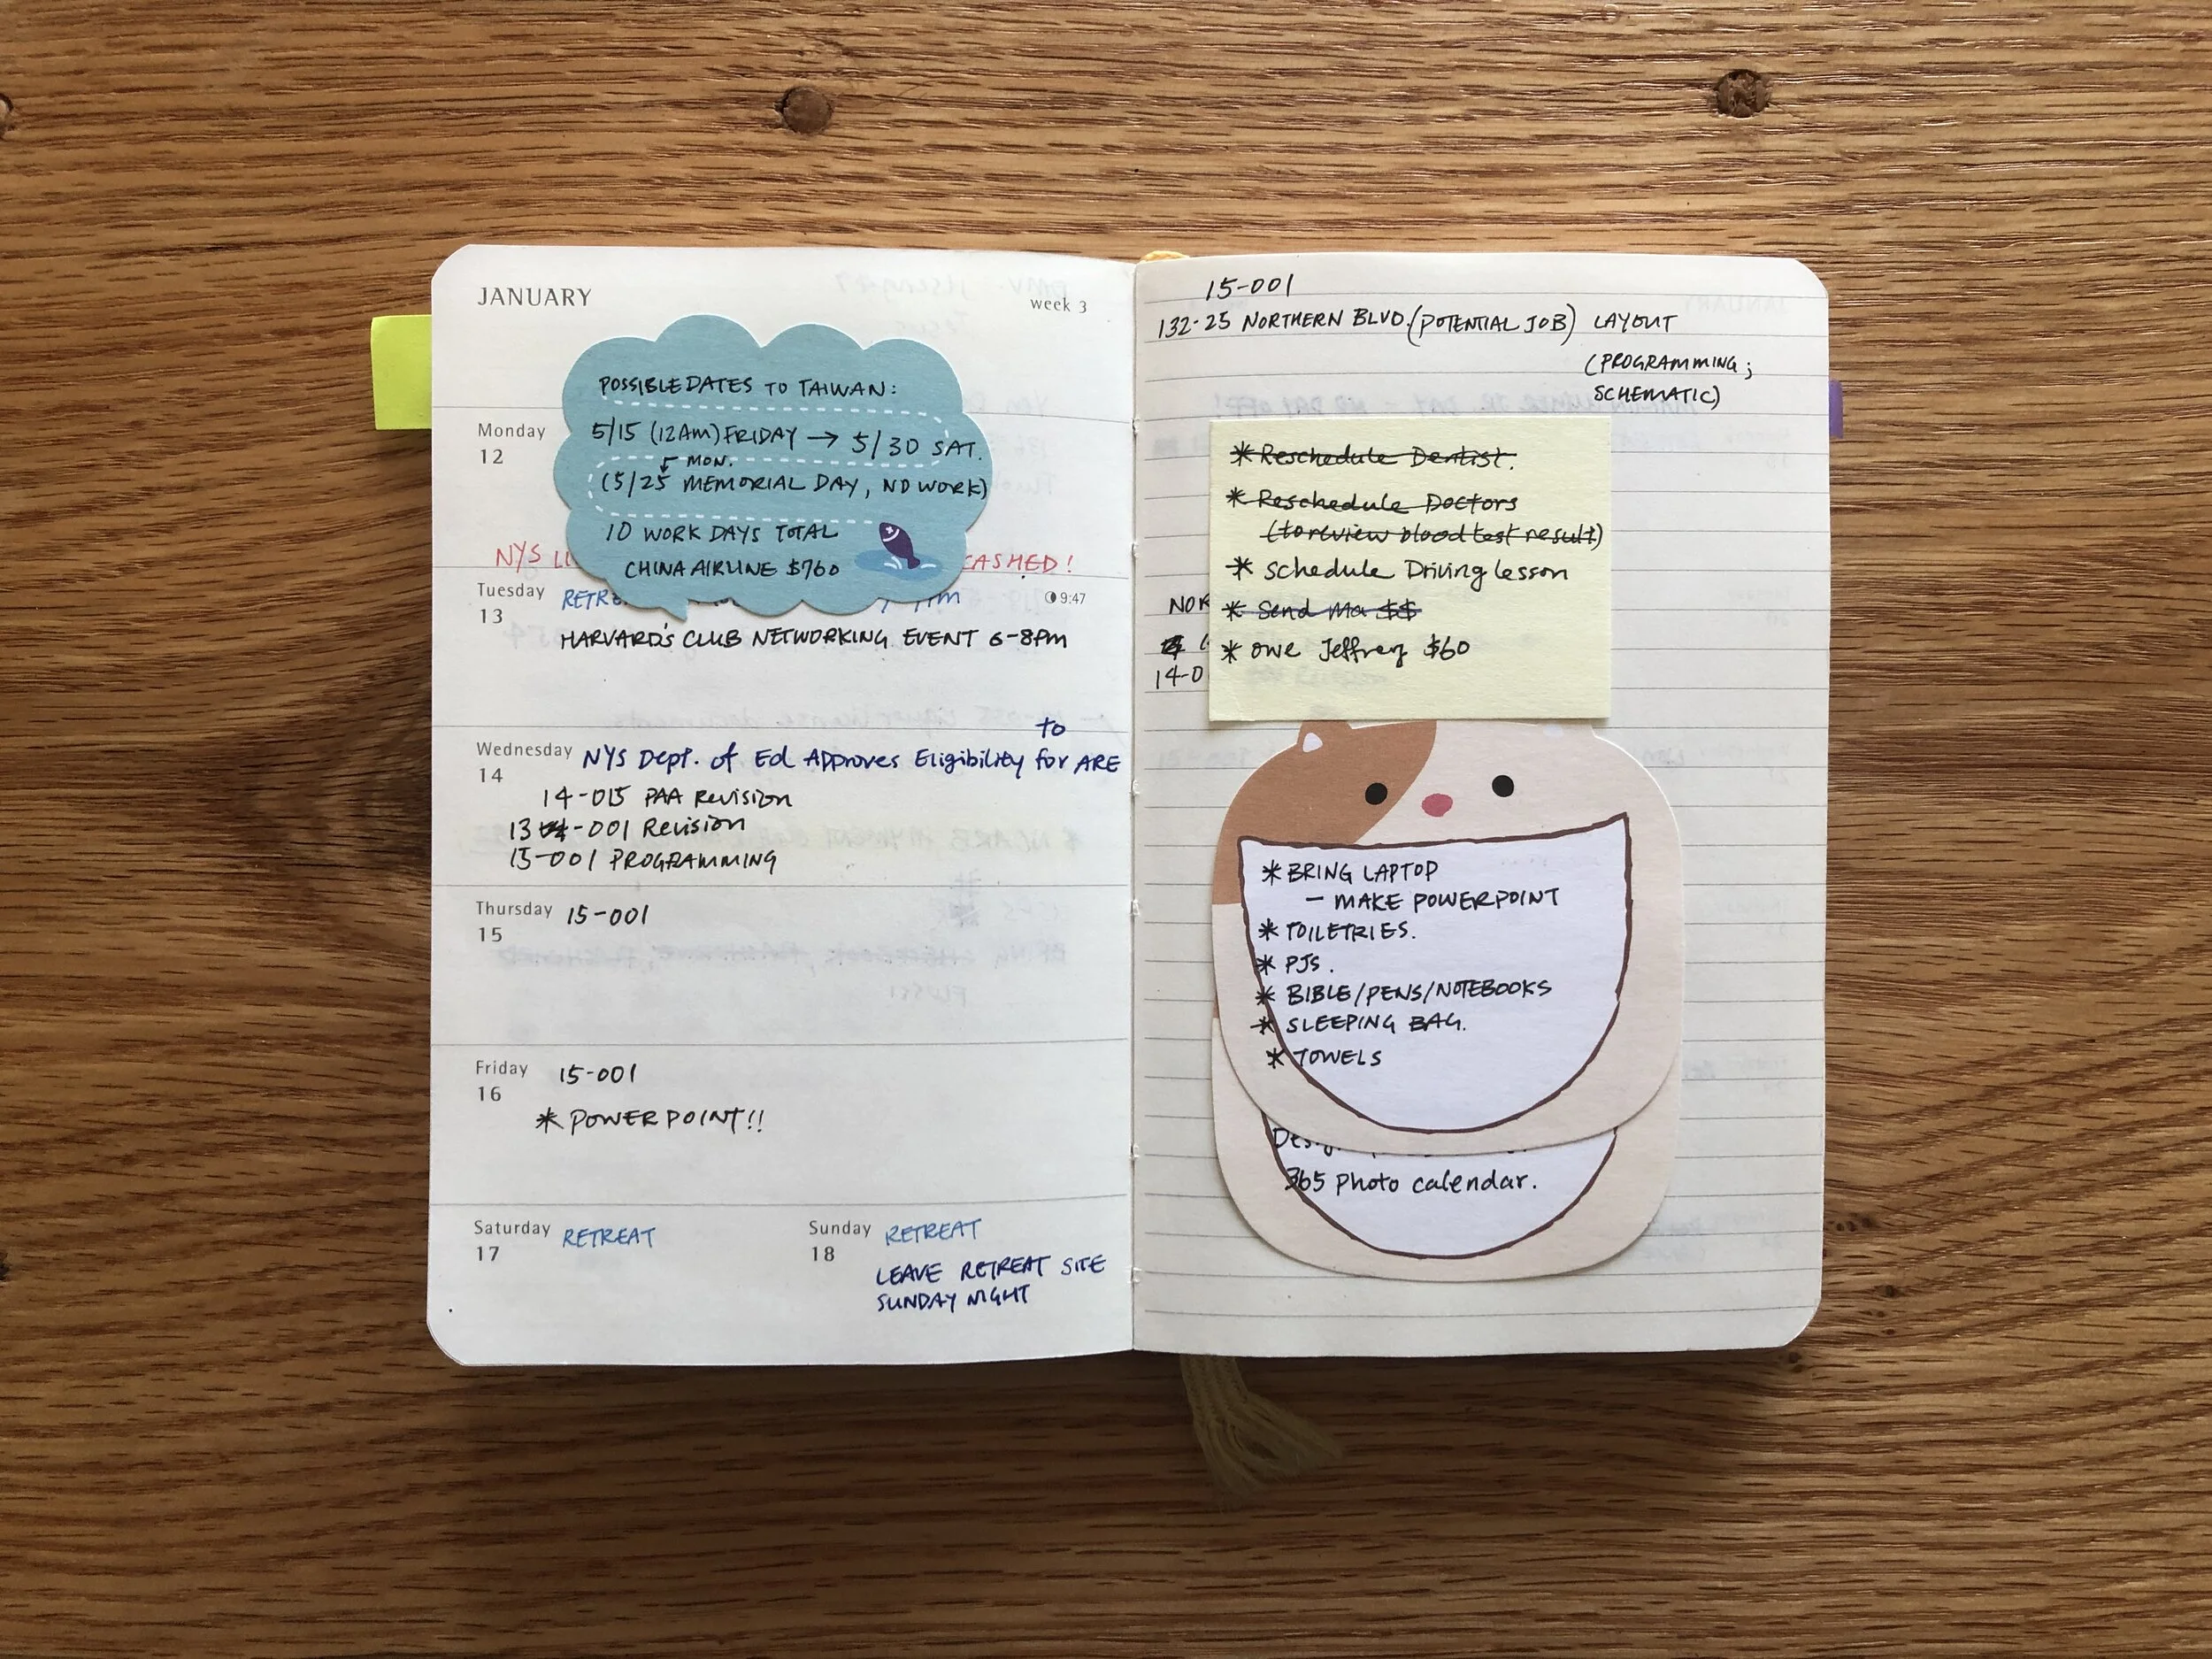 JANUARY
week 3
POSSIBLE DATES TO TAIWAN:
5/15 (12AM) FRIDAY → 5/30 SAT.
MON.
(5/25 MEMORIAL DAY, NO WORK)
10 WORK DAYS TOTAL
CHINA AIRLINE $760
Monday
12
NYS
CASHED!
Tuesday
13
9:47
HARVARD'S CLUB NETWORKING EVENT 6-8PM
Wednesday
14
to
NYS Dept. of Ed Approves Eligibility for ARE
14-015 PAA Revision
13-001 Revision
15-001 PROGRAMMING
Thursday
15
15-001
Friday
16
15-001
* POWERPOINT!!
Saturday
17
RETREAT
Sunday
18
RETREAT
LEAVE RETREAT SITE
SUNDAY NIGHT
15-001
132-25 NORTHERN BLVD. (POTENTIAL JOB) LAYOUT
(PROGRAMMING;
SCHEMATIC)
* Reschedule Dentist.
* Reschedule Doctors
(to review blood test result)
* Schedule Driving lesson
* Send Ma $$
* Owe Jeffrey $60
14-0
* BRING LAPTOP
- MAKE POWERPOINT
* TOILETRIES.
* PJS.
* BIBLE/PENS/NOTEBOOKS
* SLEEPING BAG.
* TOWELS
365 Photo calendar.